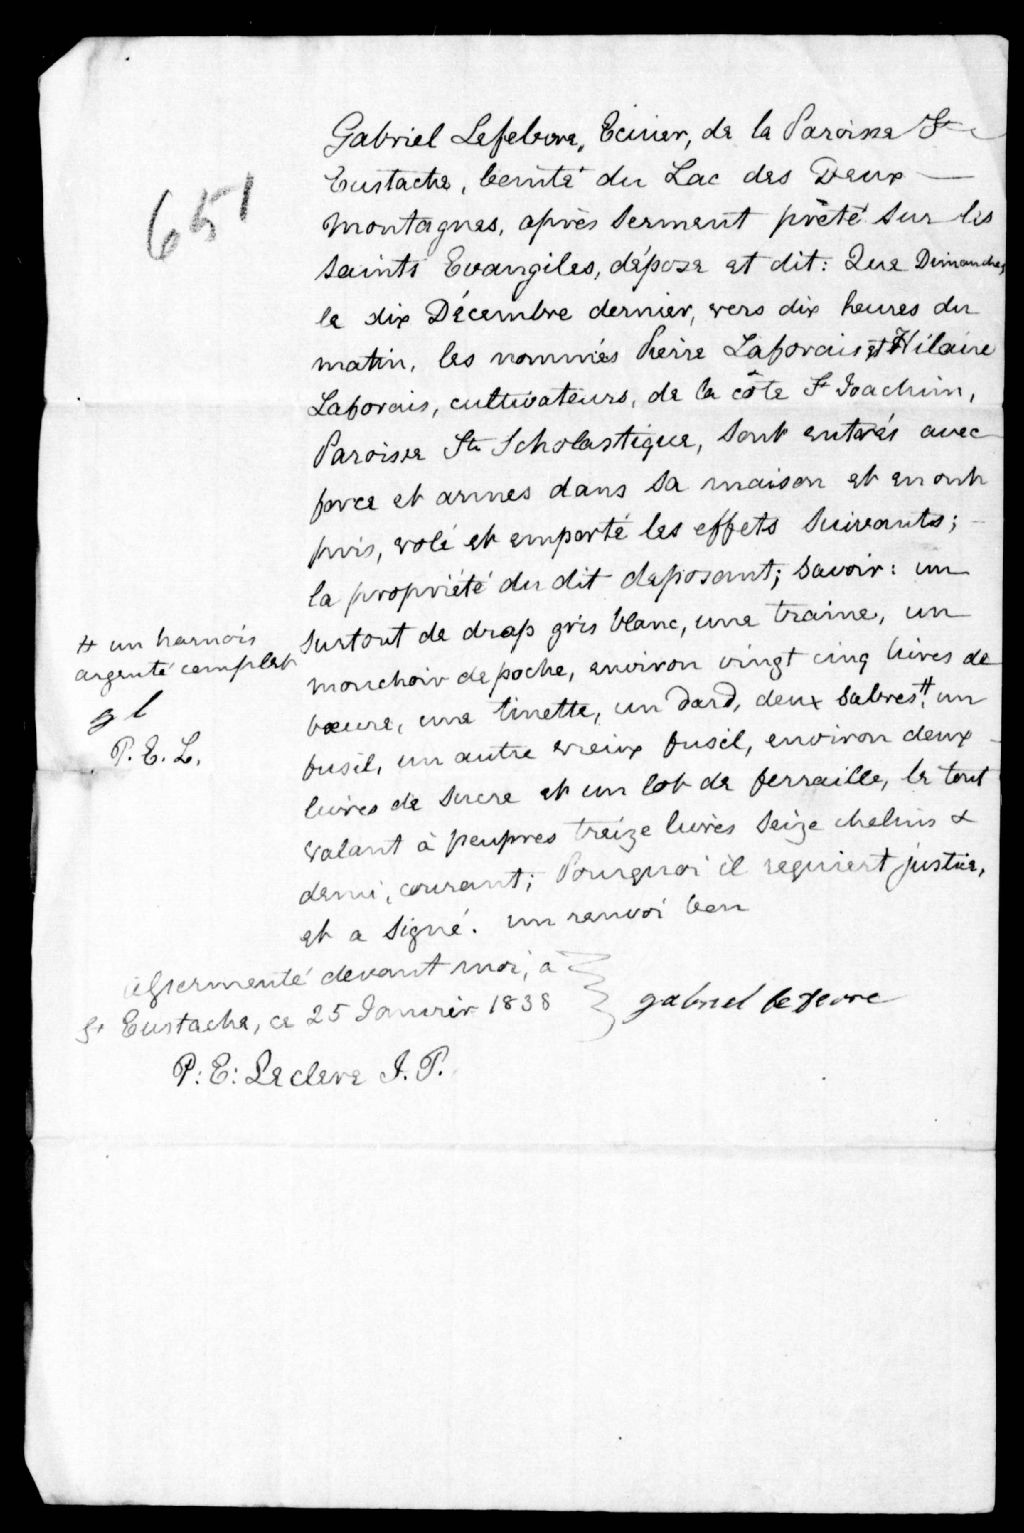 651
Gabriel Lefebvre, Ecuier, de la Paroisse St
Eustache, Comté du Lac des Deux
Montagnes, après serment prêté sur les
saints Evangiles, dépose et dit: Que Dimanche,
le dix Décembre dernier, vers dix heures du
matin, les nommés Pierre Laforais et Hilaire
Laforais, cultivateurs, de la côte St Joachim,
Paroisse Ste Scholastique, sont entrés avec
force et armes dans sa maison et en ont
pris, volé et emporté les effets suivants;
la propriété du dit deposant; savoir: un
surtout de drap gris blanc, une traine, un
mouchoir de poche, environ vingt cinq livres de
bœure, une tinette, un dard, deux sabres,# un
fusil, un autre vieux fusil, environ deux
livres de sucre et un lot de ferraille, le tout
valant à peuprès treize livres seize chelins &
demi, courant; Pourquoi il requiert justice,
et a signé. un renvoi bon
# un harnois
argenté complet
g l
P. E. L.
Assermenté devant moi, à
St Eustache, ce 25 Janvier 1838
gabriel lefevre
P: E: Leclere J. P.